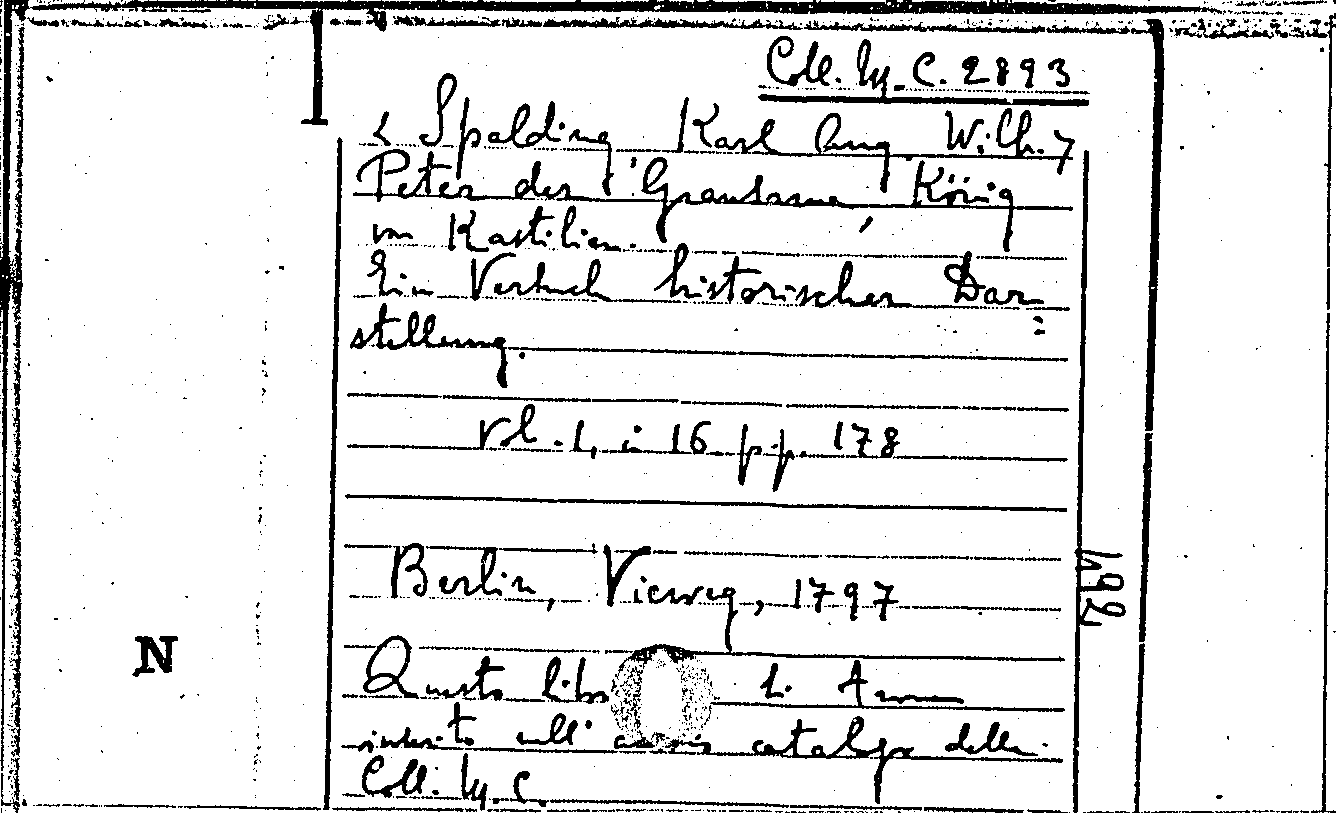 Coll. M. C. 2893
< Spalding Karl Aug. Wilh. >
Peter der Grausame, König
von Kastilien.
Ein Versuch historischer Dar=
stellung.
Vol. 1, in 16 pp. 178
Berlin, Vieweg, 1797
492
N
Questo libro
inserito nell' catalogo della
Coll. M. C.